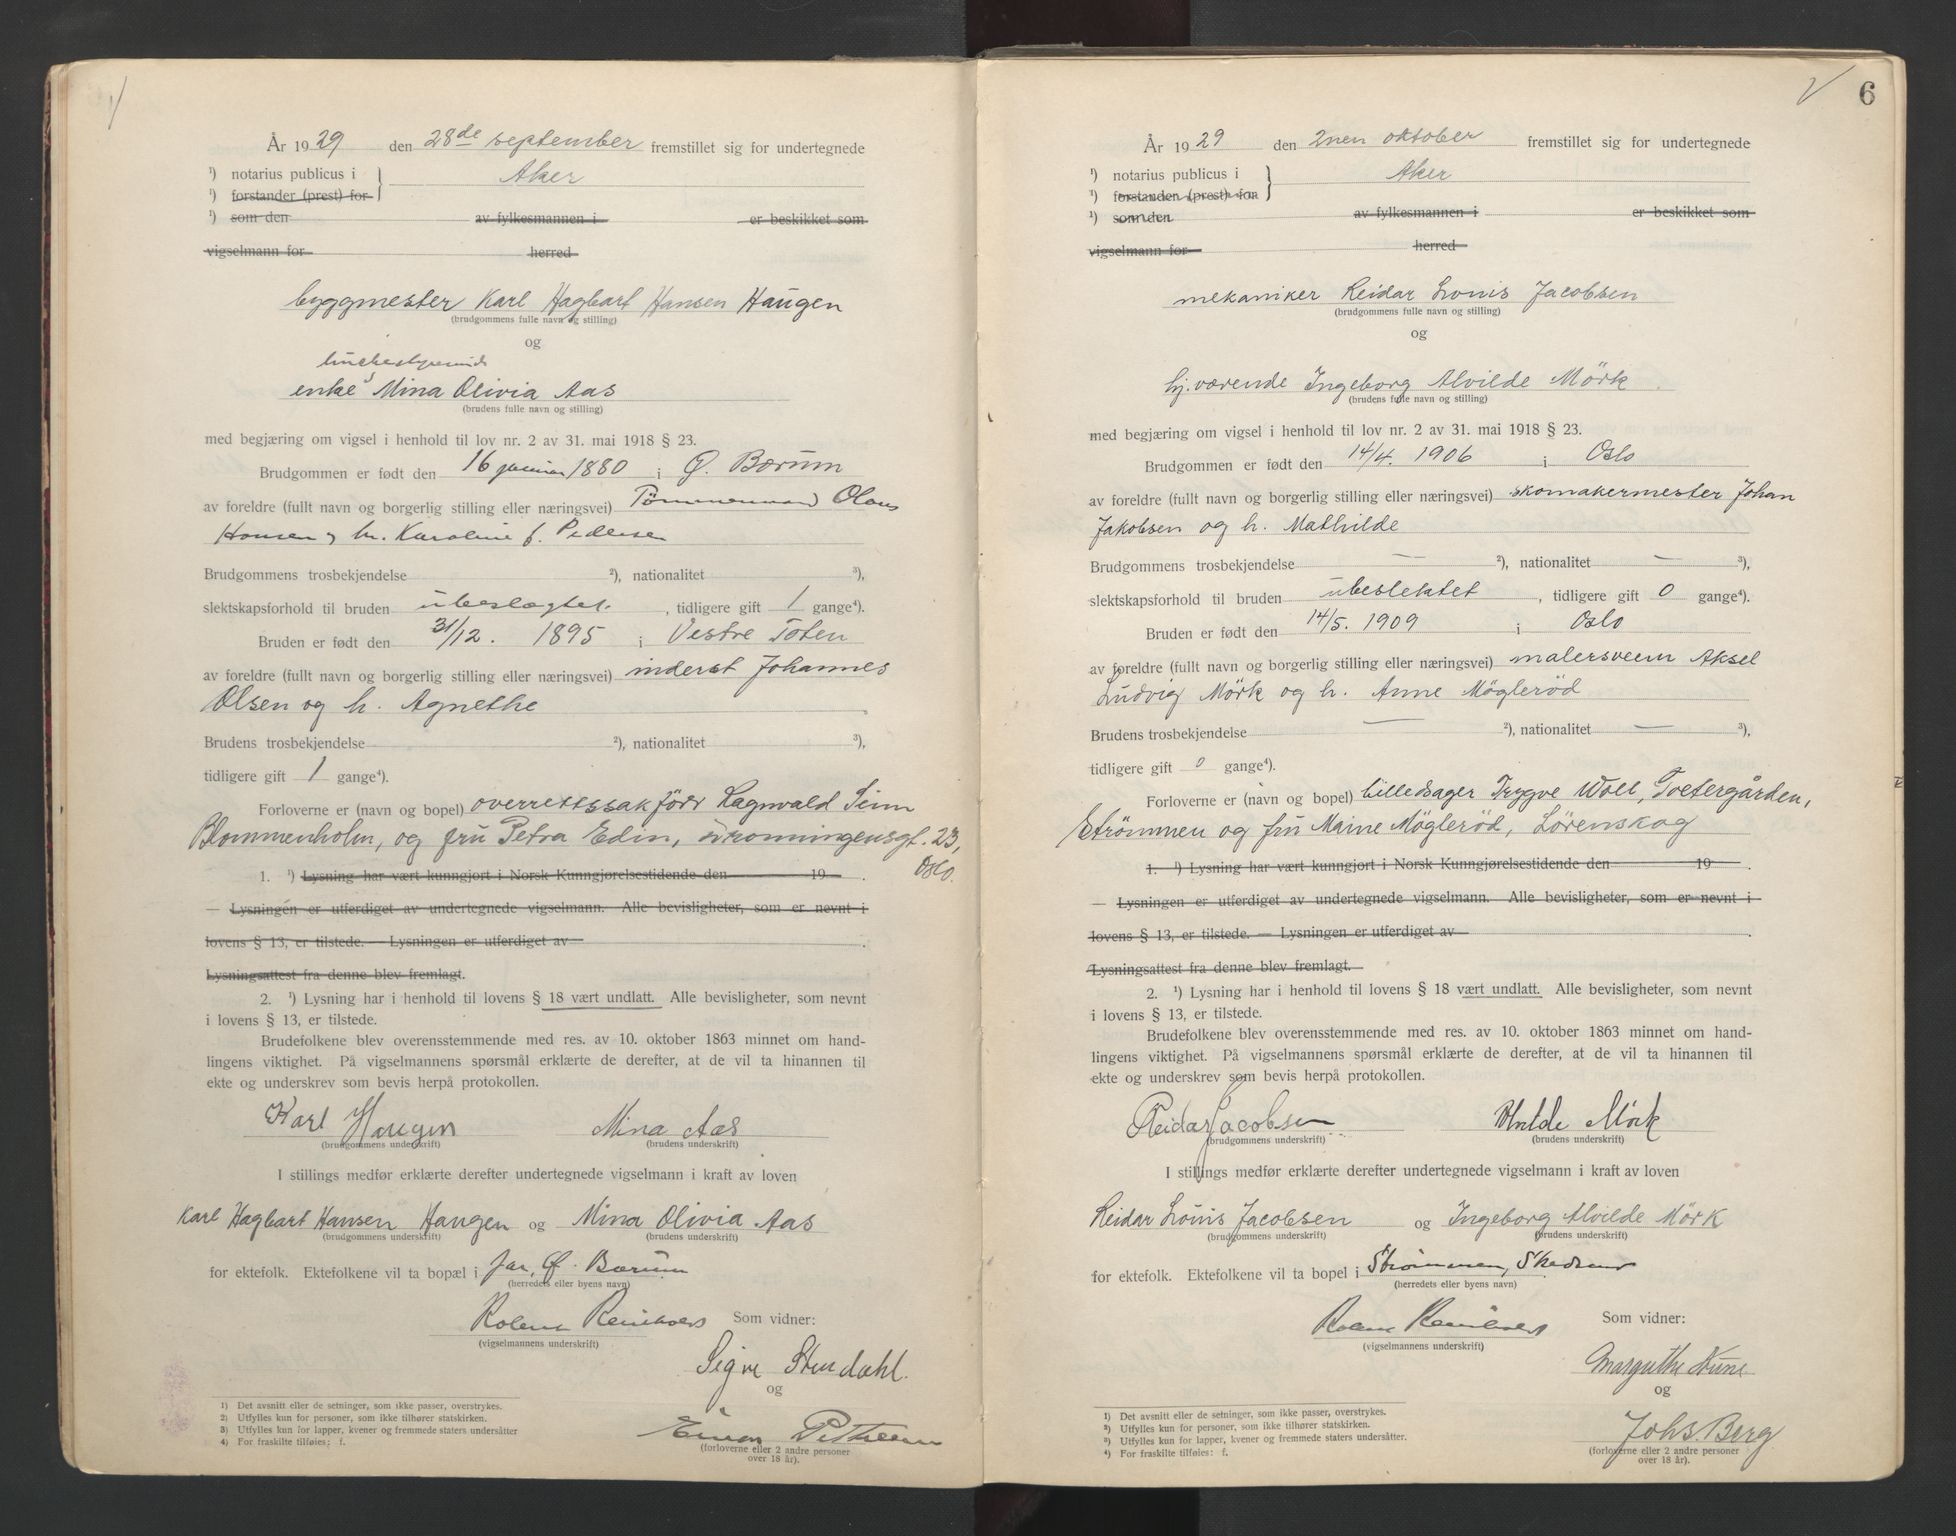 År 1929 den 28de september fremstillet sig for undertegnede
¹) notarius publicus i Aker
¹) forstander (prest) for
¹) som den av fylkesmannen i er beskikket som
vigselmann for herred
byggmester Karl Hagbart Hansen Haugen
(brudgommens fulle navn og stilling)
og
enke Mina Olivia Aas
(brudens fulle navn og stilling)
med begjæring om vigsel i henhold til lov nr. 2 av 31. mai 1918 § 23.
Brudgommen er født den 16 januar 1880 i Ø. Bærum
av foreldre (fullt navn og borgerlig stilling eller næringsvei) Tømmermand Olaus
Hansen og h. Karoline f. Pedersen
Brudgommens trosbekjendelse ²), nationalitet ³),
slektskapsforhold til bruden ubeslægtet, tidligere gift 1 gange⁴).
Bruden er født den 31/12. 1895 i Vestre Toten
av foreldre (fullt navn og borgerlig stilling eller næringsvei) inderst Johannes
Olsen og h. Agnethe
Brudens trosbekjendelse ²), nationalitet ³),
tidligere gift 1 gange⁴).
Forloverne er (navn og bopel) overrettssakfører Ragnvald
Blommenholm, og fru Petra Edin, Dronningensgt. 23,
Oslo.
1. ¹) Lysning har vært kunngjort i Norsk Kunngjørelsestidende den 19 .
— Lysningen er utferdiget av undertegnede vigselmann. Alle bevisligheter, som er nevnt i
lovens § 13, er tilstede. — Lysningen er utferdiget av .
Lysningsattest fra denne blev fremlagt.
2. ¹) Lysning har i henhold til lovens § 18 vært undlatt. Alle bevisligheter, som nevnt
i lovens § 13, er tilstede.
Brudefolkene blev overensstemmende med res. av 10. oktober 1863 minnet om hand-
lingens viktighet. På vigselmannens spørsmål erklærte de derefter, at de vil ta hinannen til
ekte og underskrev som bevis herpå protokollen.
Karl Haugen Mina Aas
(brudgommens underskrift) (brudens underskrift)
I stillings medfør erklærte derefter undertegnede vigselmann i kraft av loven
Karl Hagbart Hansen Haugen og Mina Olivia Aas
(brudgommens underskrift) (brudens underskrift)
for ektefolk. Ektefolkene vil ta bopæl i Jar, Ø. Bærum
(herredets eller byens navn)
Som vidner:
(vigselmannens underskrift)
Sigve Stendahl.
og
Einar
(forloverne eller 2 andre personer
over 18 år).
1) Det avsnitt eller de setninger, som ikke passer, overstrykes.
2) Utfylles kun for personer, som ikke tilhører statskirken.
3) Utfylles kun for lapper, kvener og fremmede staters undersåtter
4) For fraskilte tilføies: f.
6
År 1929 den 2nen oktober fremstillet sig for undertegnede
¹) notarius publicus i Aker
¹) forstander (prest) for
¹) som den av fylkesmannen i er beskikket som
vigselmann for herred
mekaniker Reidar Louis Jacobsen
(brudgommens fulle navn og stilling)
og
hj.værende Ingeborg Alvilde Mörk
(brudens fulle navn og stilling)
med begjæring om vigsel i henhold til lov nr. 2 av 31. mai 1918 § 23.
Brudgommen er født den 14/4. 1906 i Oslo
av foreldre (fullt navn og borgerlig stilling eller næringsvei) skomakermester Johan
Jakobsen og h. Mathilde
Brudgommens trosbekjendelse — ²), nationalitet — ³),
slektskapsforhold til bruden ubeslektet, tidligere gift 0 gange⁴).
Bruden er født den 14/5. 1909 i Oslo
av foreldre (fullt navn og borgerlig stilling eller næringsvei) malersvenn Aksel
Ludvig Mörk og h. Anne Mögleröd
Brudens trosbekjendelse — ²), nationalitet — ³),
tidligere gift 0 gange⁴).
Forloverne er (navn og bopel) billedsager Trygve Woll, Tvetergården,
Strömmen og fru Maine Mögleröd, Lörenskog
1. ¹) Lysning har vært kunngjort i Norsk Kunngjørelsestidende den 19 .
— Lysningen er utferdiget av undertegnede vigselmann. Alle bevisligheter, som er nevnt i
lovens § 13, er tilstede. — Lysningen er utferdiget av .
Lysningsattest fra denne blev fremlagt.
2. ¹) Lysning har i henhold til lovens § 18 vært undlatt. Alle bevisligheter, som nevnt
i lovens § 13, er tilstede.
Brudefolkene blev overensstemmende med res. av 10. oktober 1863 minnet om hand-
lingens viktighet. På vigselmannens spørsmål erklærte de derefter, at de vil ta hinannen til
ekte og underskrev som bevis herpå protokollen.
Reidar Jacobsen Alvilde Mörk
(brudgommens underskrift) (brudens underskrift)
I stillings medfør erklærte derefter undertegnede vigselmann i kraft av loven
Reidar Louis Jacobsen og Ingeborg Alvilde Mörk
(brudgommens underskrift) (brudens underskrift)
for ektefolk. Ektefolkene vil ta bopel i Strømmen, Skedsmo
(herredets eller byens navn)
Som vidner:
(vigselmannens underskrift)
Margrethe
og
Johs. Berg
(forloverne eller 2 andre personer
over 18 år).
¹) Det avsnitt eller de setninger, som ikke passer, overstrykes.
²) Utfylles kun for personer, som ikke tilhører statskirken.
³) Utfylles kun for lapper, kvener og fremmede staters undersåtter.
⁴) For fraskilte tilføies: f.